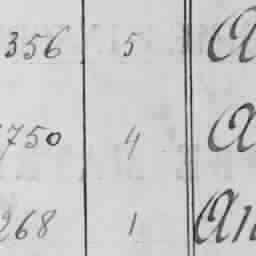 356 5 A
750 4 A
268 1 An